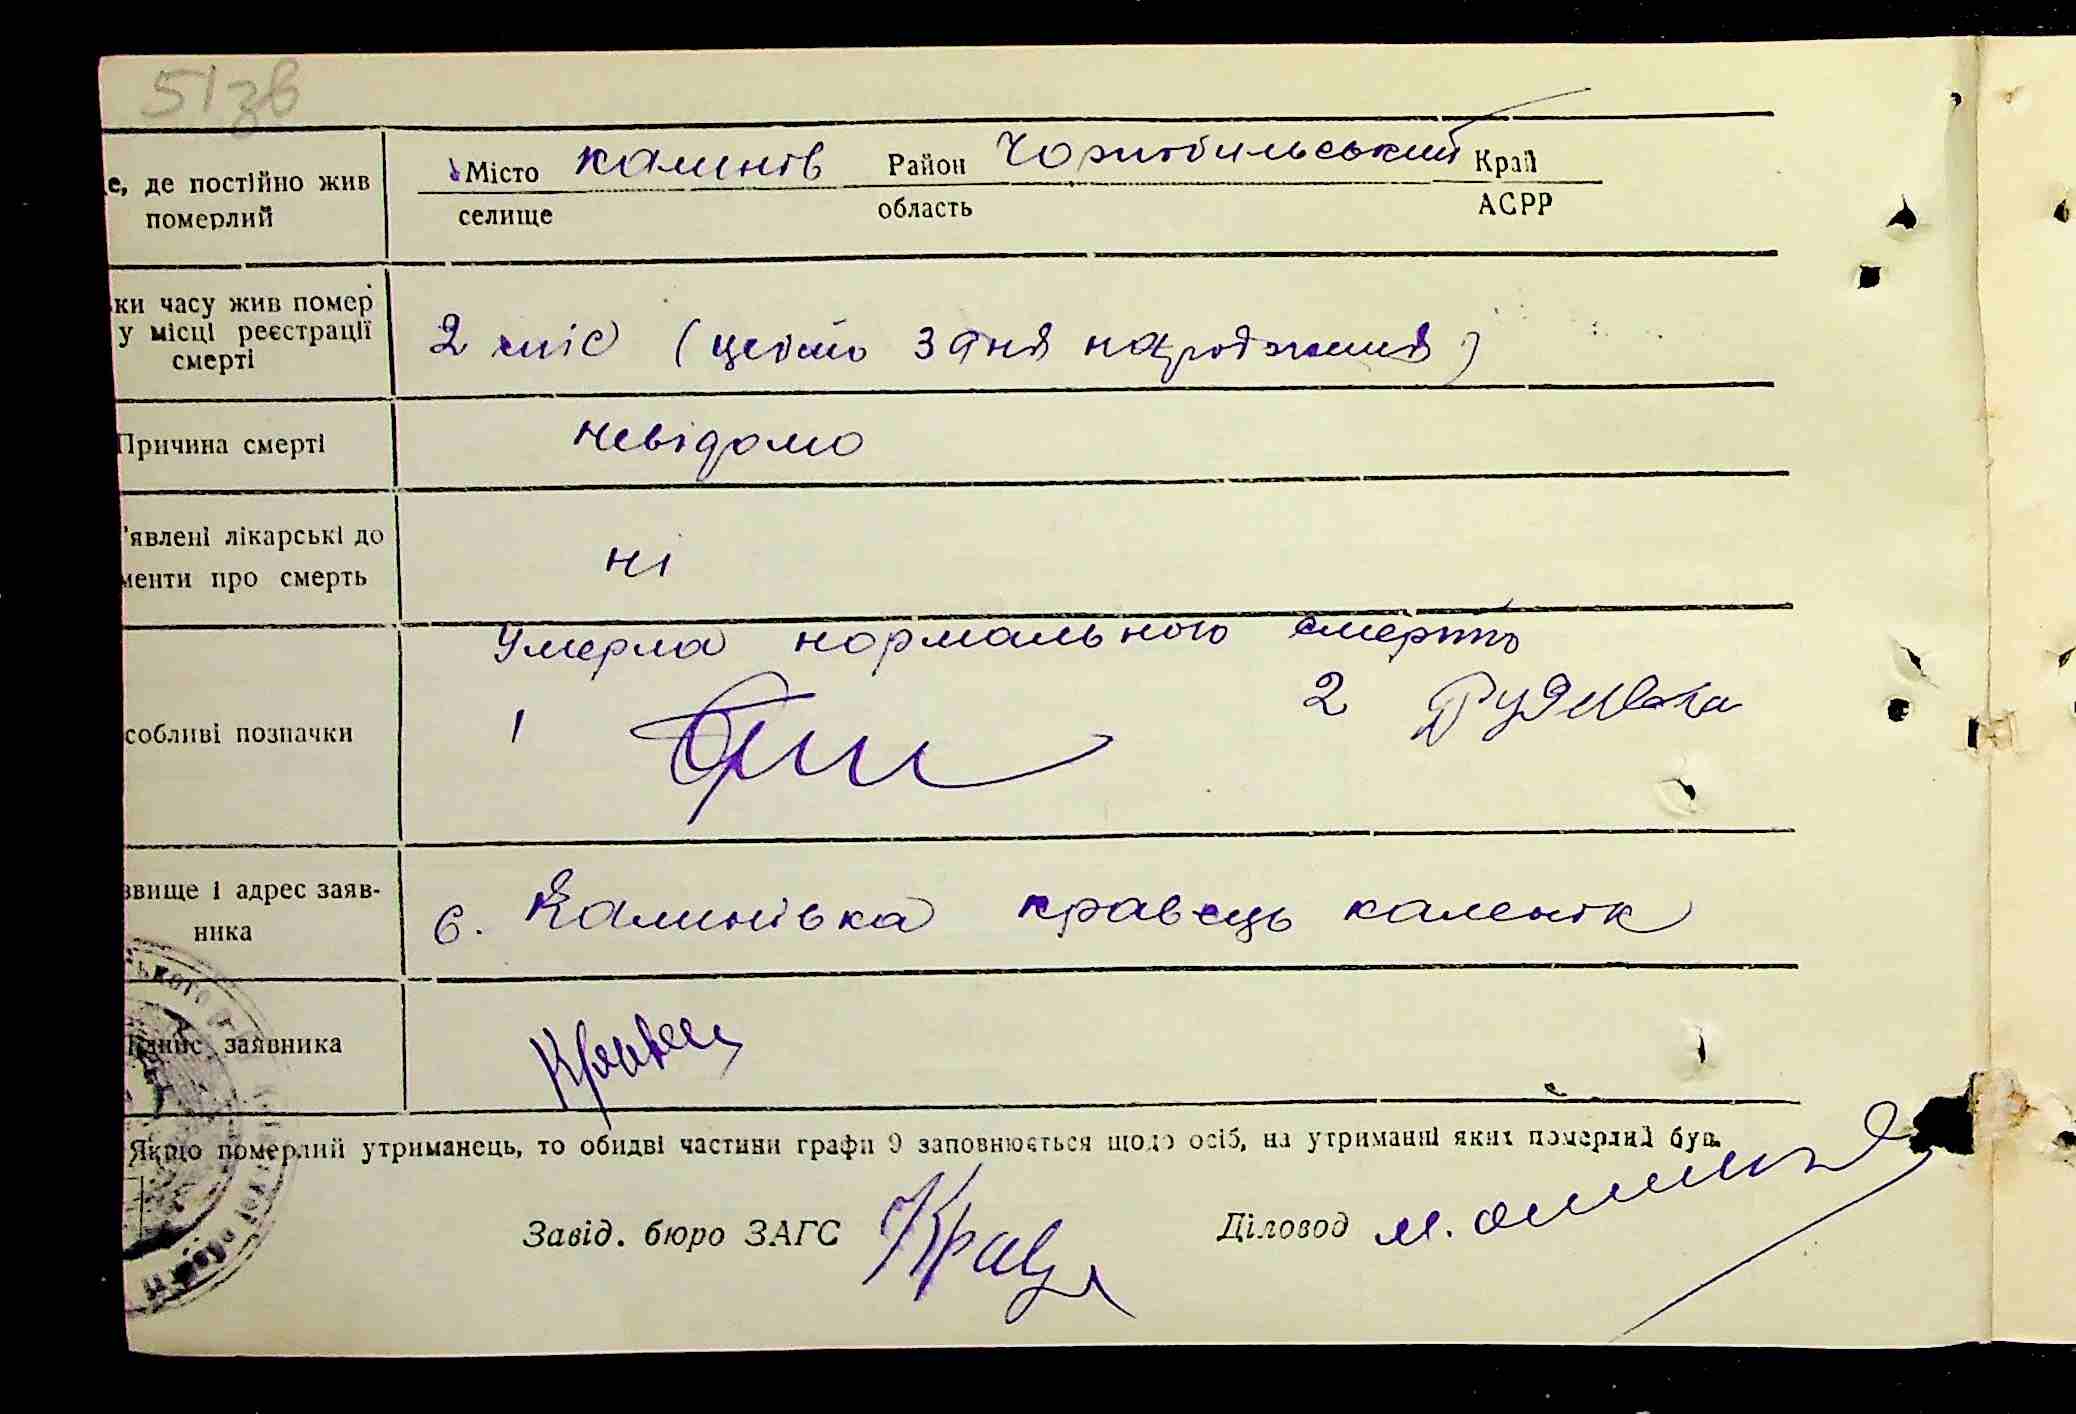 51зв
е, де постійно жив
померлий
Місто Калинів Район Чорнобильський Край
селище область АСРР
ки часу жив помер
у місці реєстрації
смерті
2 міс ( з дня народження)
Причина смерті
невідомо
'явлені лікарські до
менти про смерть
ні
Умерла нормального смертю
собливі позначки
1 2
звище і адрес заяв-
ника
с. Калинівка кравець каленік
Підпис заявника
Кравец
Якщо померлий утриманець, то обидві частини графи 9 заповнюється щодо осіб, на утриманні яких померлий був.
Завід. бюро ЗАГС Діловод